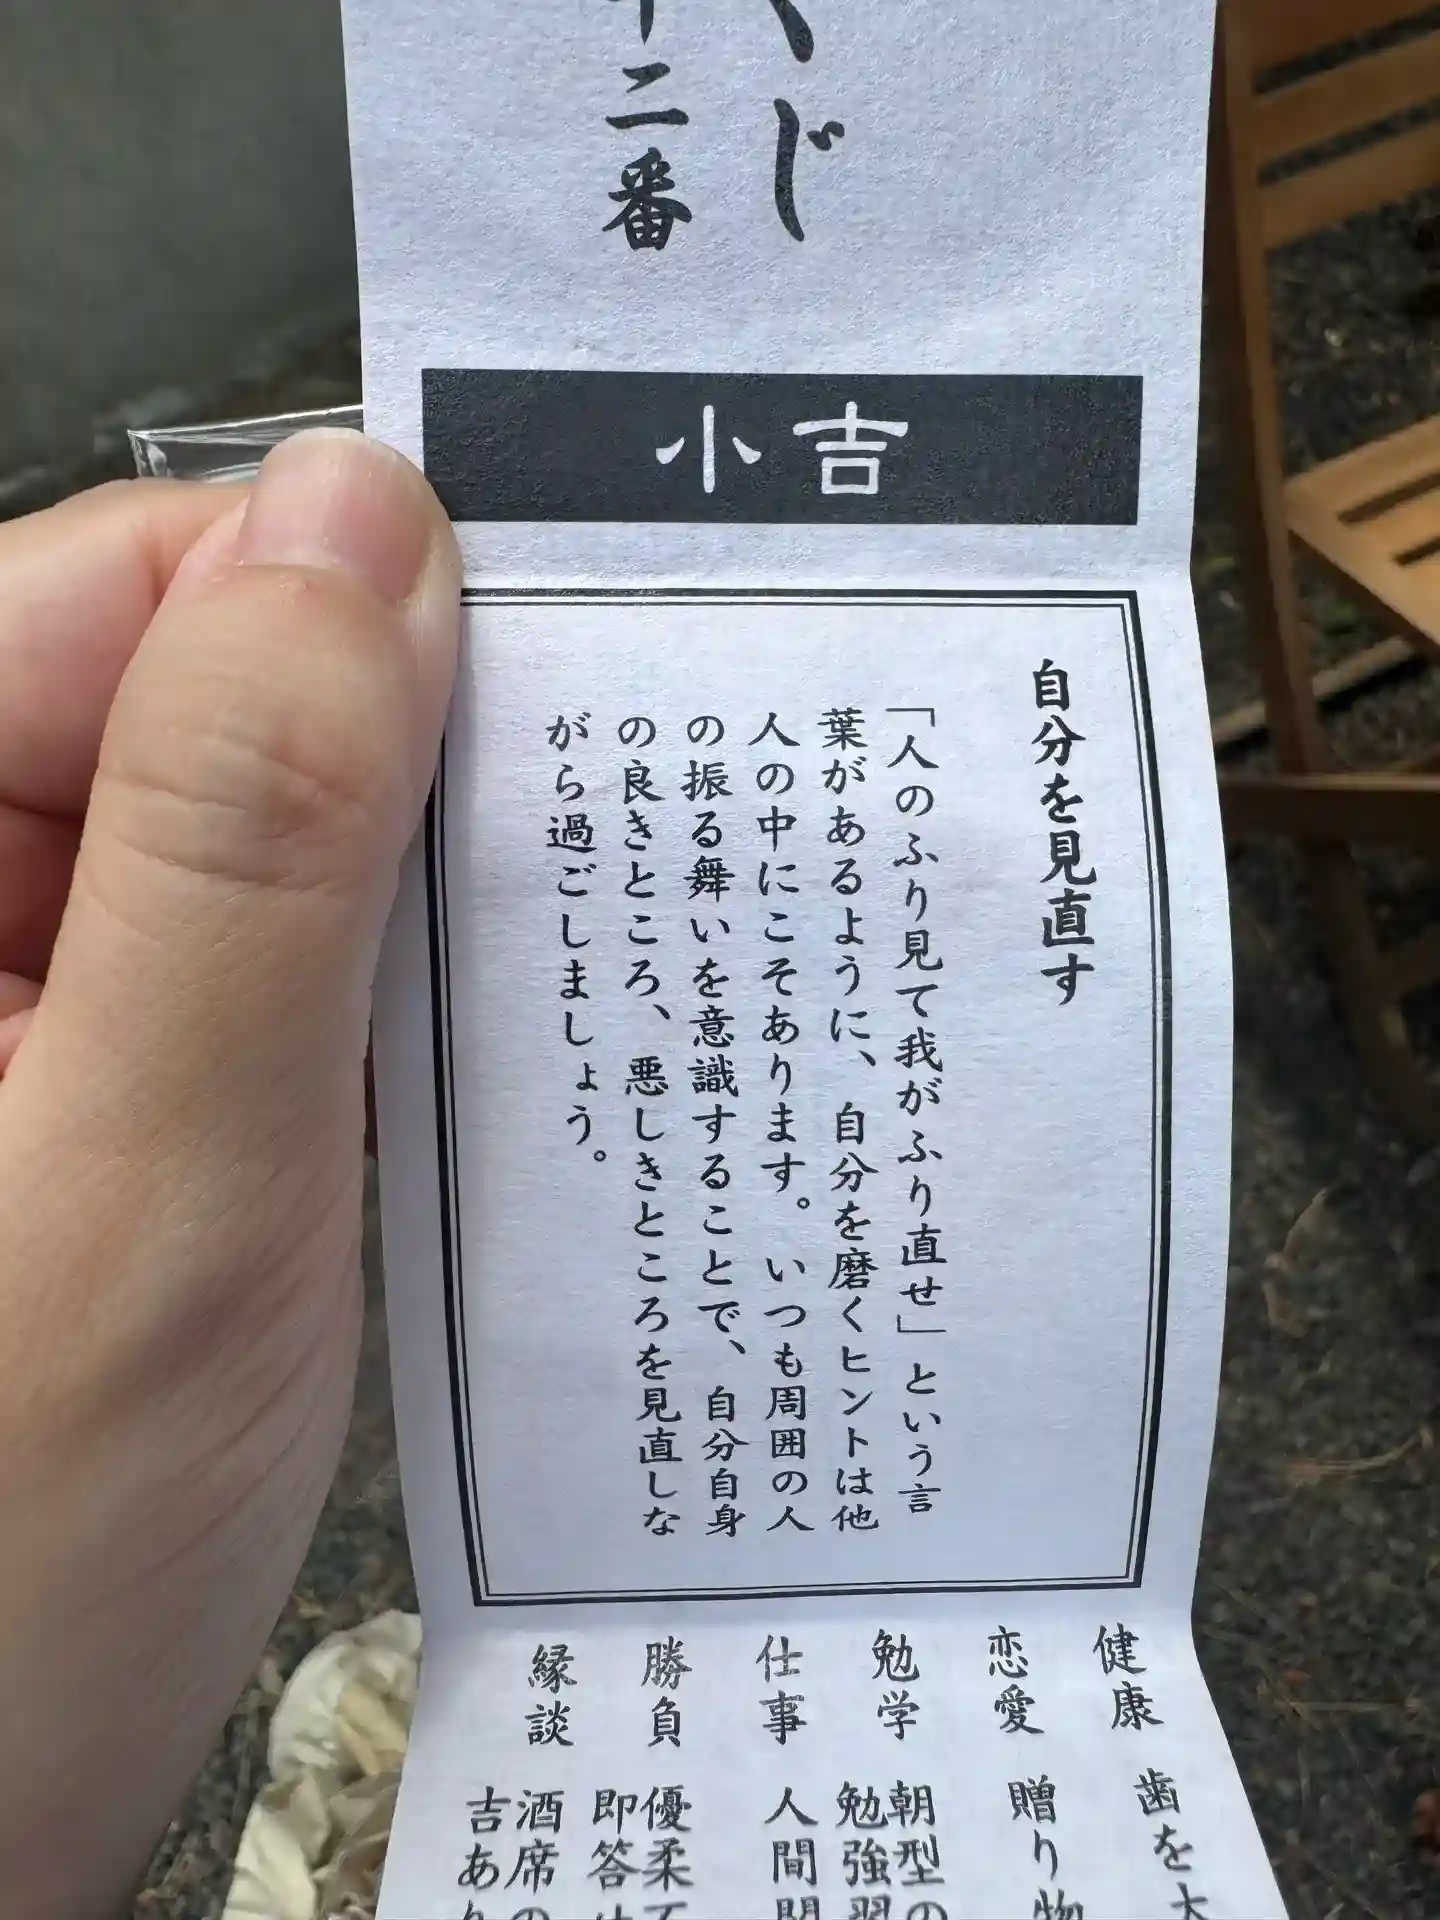 くじ
十二番
小吉
自分を見直す
「人のふり見て我がふり直せ」という言
葉があるように、自分を磨くヒントは他
人の中にこそあります。いつも周囲の人
の振る舞いを意識することで、自分自身
の良きところ、悪しきところを見直しな
がら過ごしましょう。
健康 歯を大
恋愛 贈り物
勉学 朝型の
勉強習
仕事 人間関
勝負 優柔不
即答は
縁談 酒席の
吉あり